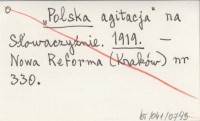 „Polska agitacja” na
Słowaczyźnie. 1919. —
Nowa Reforma (Kraków) nr
330.